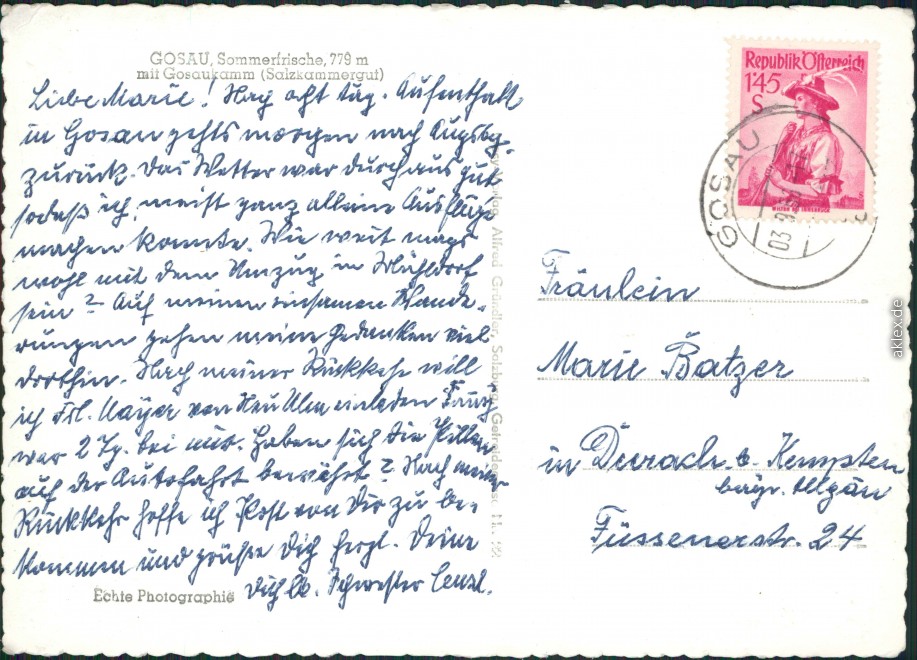 GOSAU, Sommerfrische, 779 m
mit Gosaukamm (Salzkammergut)
Liebe Marie! Nach acht täg. Aufenthalt
in Gosau gehts morgen nach Augsbg.
zurück. Das Wetter war durchaus gut
sodaß ich, meist ganz alleine Ausflüge
machen konnte. Wie weit mags
wohl mit dem Umzug in Mühldorf
sein? Auf meinen einsamen Wande-
rungen gehen meine Gedanken viel
dorthin. Nach meiner Rückkehr will
ich Frl. Mayer von Neu Ulm einladen
war 2 Tg. bei uns. Haben sich die Pillen
auf der Autofahrt bewährt? Nach meiner
Rückkehr hoffe ich Post von Dir zu be-
kommen und grüße Dich herzl. Deine
Dich lb. Schwester Cenzl.
Echte Photographie
Alfred Gründler, Salzburg, Getreidegasse
Republik Österreich
1'45
S
GOSAU
Fräulein
Marie Batzer
in Durach b. Kempten
bayr. Allgäu
Füssenerstr. 24
aklex.de